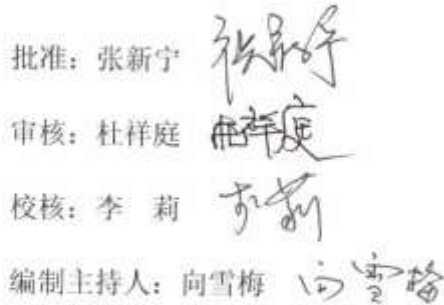 批准：张新宁 张新宁
审核：杜祥庭 杜祥庭
校核：李　莉 李莉
编制主持人：向雪梅 向雪梅